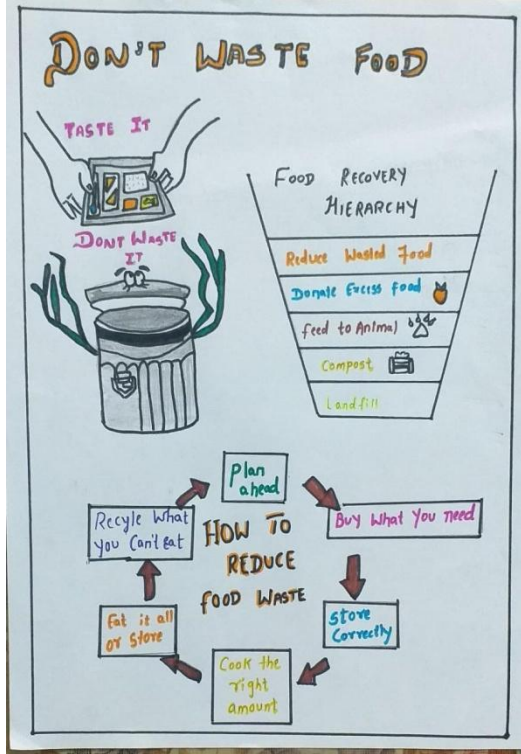 DON'T WASTE FOOD
TASTE IT
DONT WASTE
IT
FOOD RECOVERY
HIERARCHY
Reduce Wasted Food
Donate Excess food
feed to Animal
Compost
Landfill
Plan
ahead
Buy What You need
Store
Correctly
Cook the
right
amount
Eat it all
or store
Recyle What
you Can't Eat
HOW TO
REDUCE
FOOD WASTE